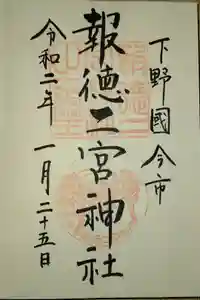 下野國 今市
報徳二宮神社
令和二年 一月二十五日